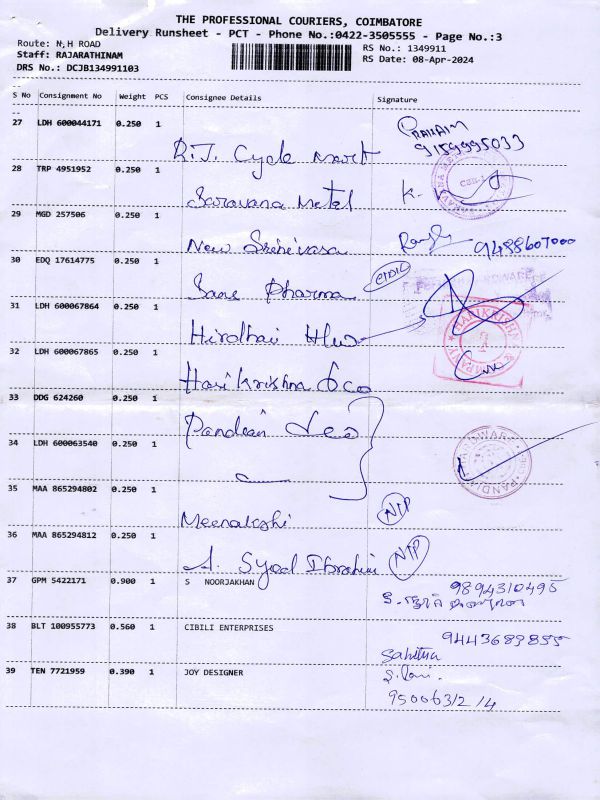 THE PROFESSIONAL COURIERS, COIMBATORE
Delivery Runsheet - PCT - Phone No.:0422-3505555 - Page No.:3
Route: N,H ROAD
RS No.: 1349911
Staff: RAJARATHINAM
RS Date: 08-Apr-2024
DRS No.: DCJB134991103
S No Consignment No Weight PCS Consignee Details Signature
27 LDH 600044171 0.250 1
9159995033
R.J. Cycle mart
28 TRP 4951952 0.250 1
Saravana Metal
29 MGD 257506 0.250 1
New Srinivasa 9488607000
30 EDQ 17614775 0.250 1
Sane Pharma
31 LDH 600067864 0.250 1
Hirdhai
32 LDH 600067865 0.250 1
HARIKRISHNA & COMPANY
Harikrishna & co
33 DDG 624260 0.250 1
Pandian
34 LDH 600063540 0.250 1
35 MAA 865294802 0.250 1
Meenakshi NTP
36 MAA 865294812 0.250 1
A. Syed Ibrahim NTP
37 GPM 5422171 0.900 1 S NOORJAKHAN
9894310495
38 BLT 100955773 0.560 1 CIBILI ENTERPRISES
9443689855
Sahitha
39 TEN 7721959 0.390 1 JOY DESIGNER
950063/2 /4